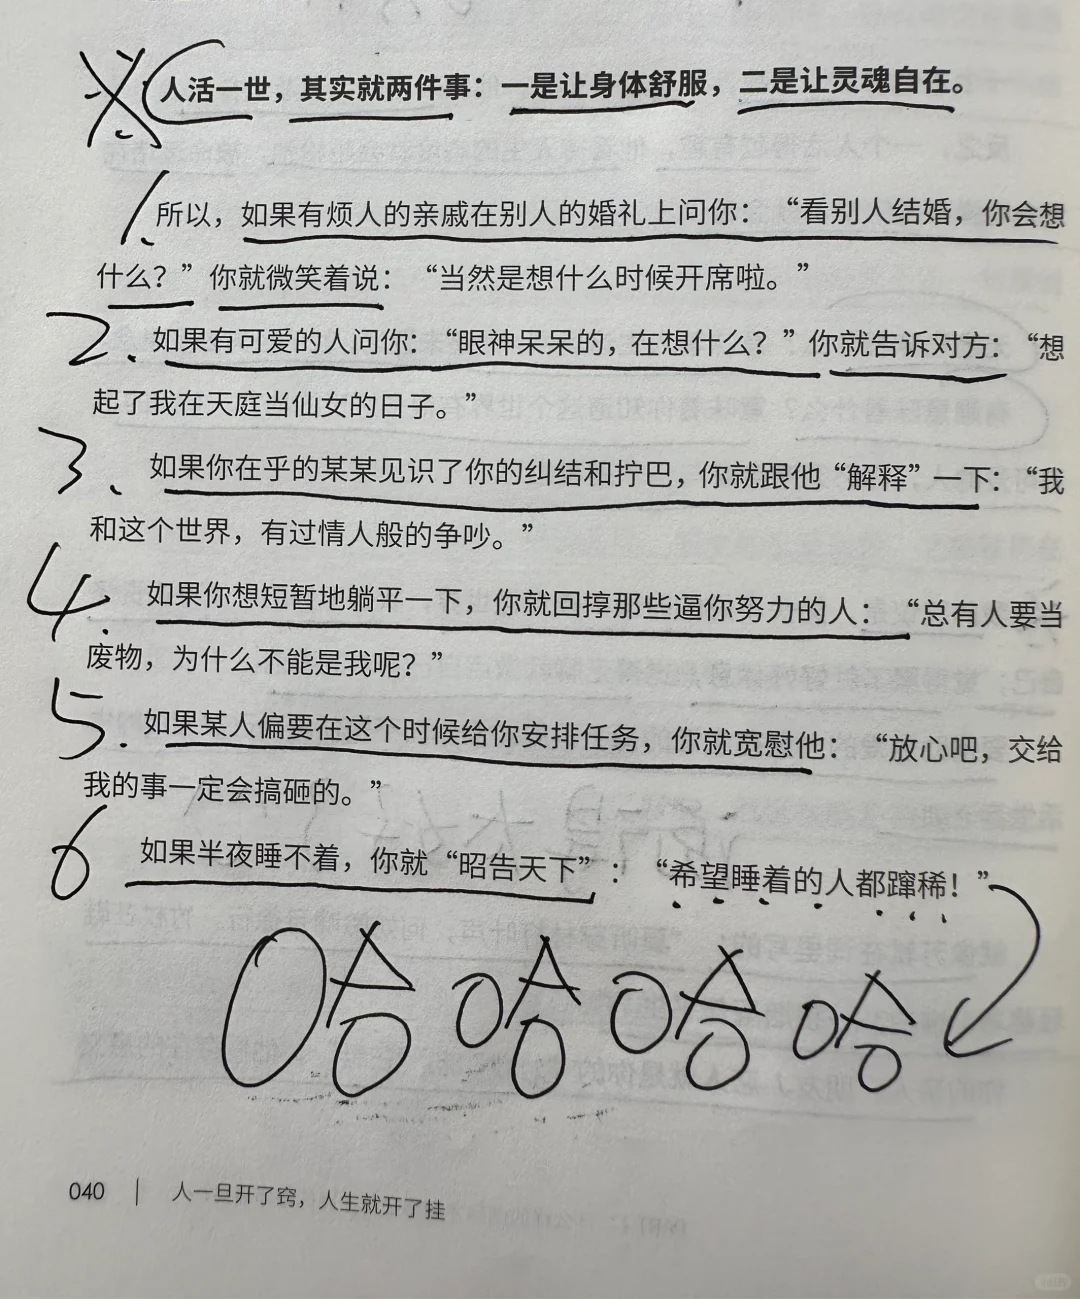 人活一世，其实就两件事：一是让身体舒服，二是让灵魂自在。
1. 所以，如果有烦人的亲戚在别人的婚礼上问你：“看别人结婚，你会想
什么？”你就微笑着说：“当然是想什么时候开席啦。”
2. 如果有可爱的人问你：“眼神呆呆的，在想什么？”你就告诉对方：“想
起了我在天庭当仙女的日子。”
3. 如果你在乎的某某见识了你的纠结和拧巴，你就跟他“解释”一下：“我
和这个世界，有过情人般的争吵。”
4. 如果你想短暂地躺平一下，你就回撑那些逼你努力的人：“总有人要当
废物，为什么不能是我呢？”
5. 如果某人偏要在这个时候给你安排任务，你就宽慰他：“放心吧，交给
我的事一定会搞砸的。”
6 如果半夜睡不着，你就“昭告天下”：“希望睡着的人都蹿稀！”
哈哈哈哈
040 | 人一旦开了窍，人生就开了挂